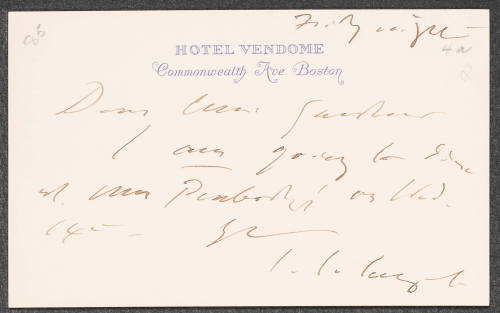 Friday night
HOTEL VENDOME
Commonwealth Ave Boston
Dear Mrs. Gardner
I am going to dine
at Mrs Peabody's on Wed.
14th